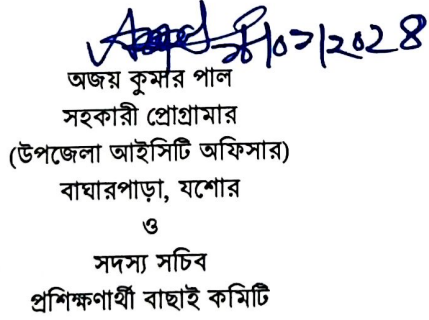 অজয় কুমার পাল
সহকারী প্রোগ্রামার
(উপজেলা আইসিটি অফিসার)
বাঘারপাড়া, যশোর
ও
সদস্য সচিব
প্রশিক্ষণার্থী বাছাই কমিটি